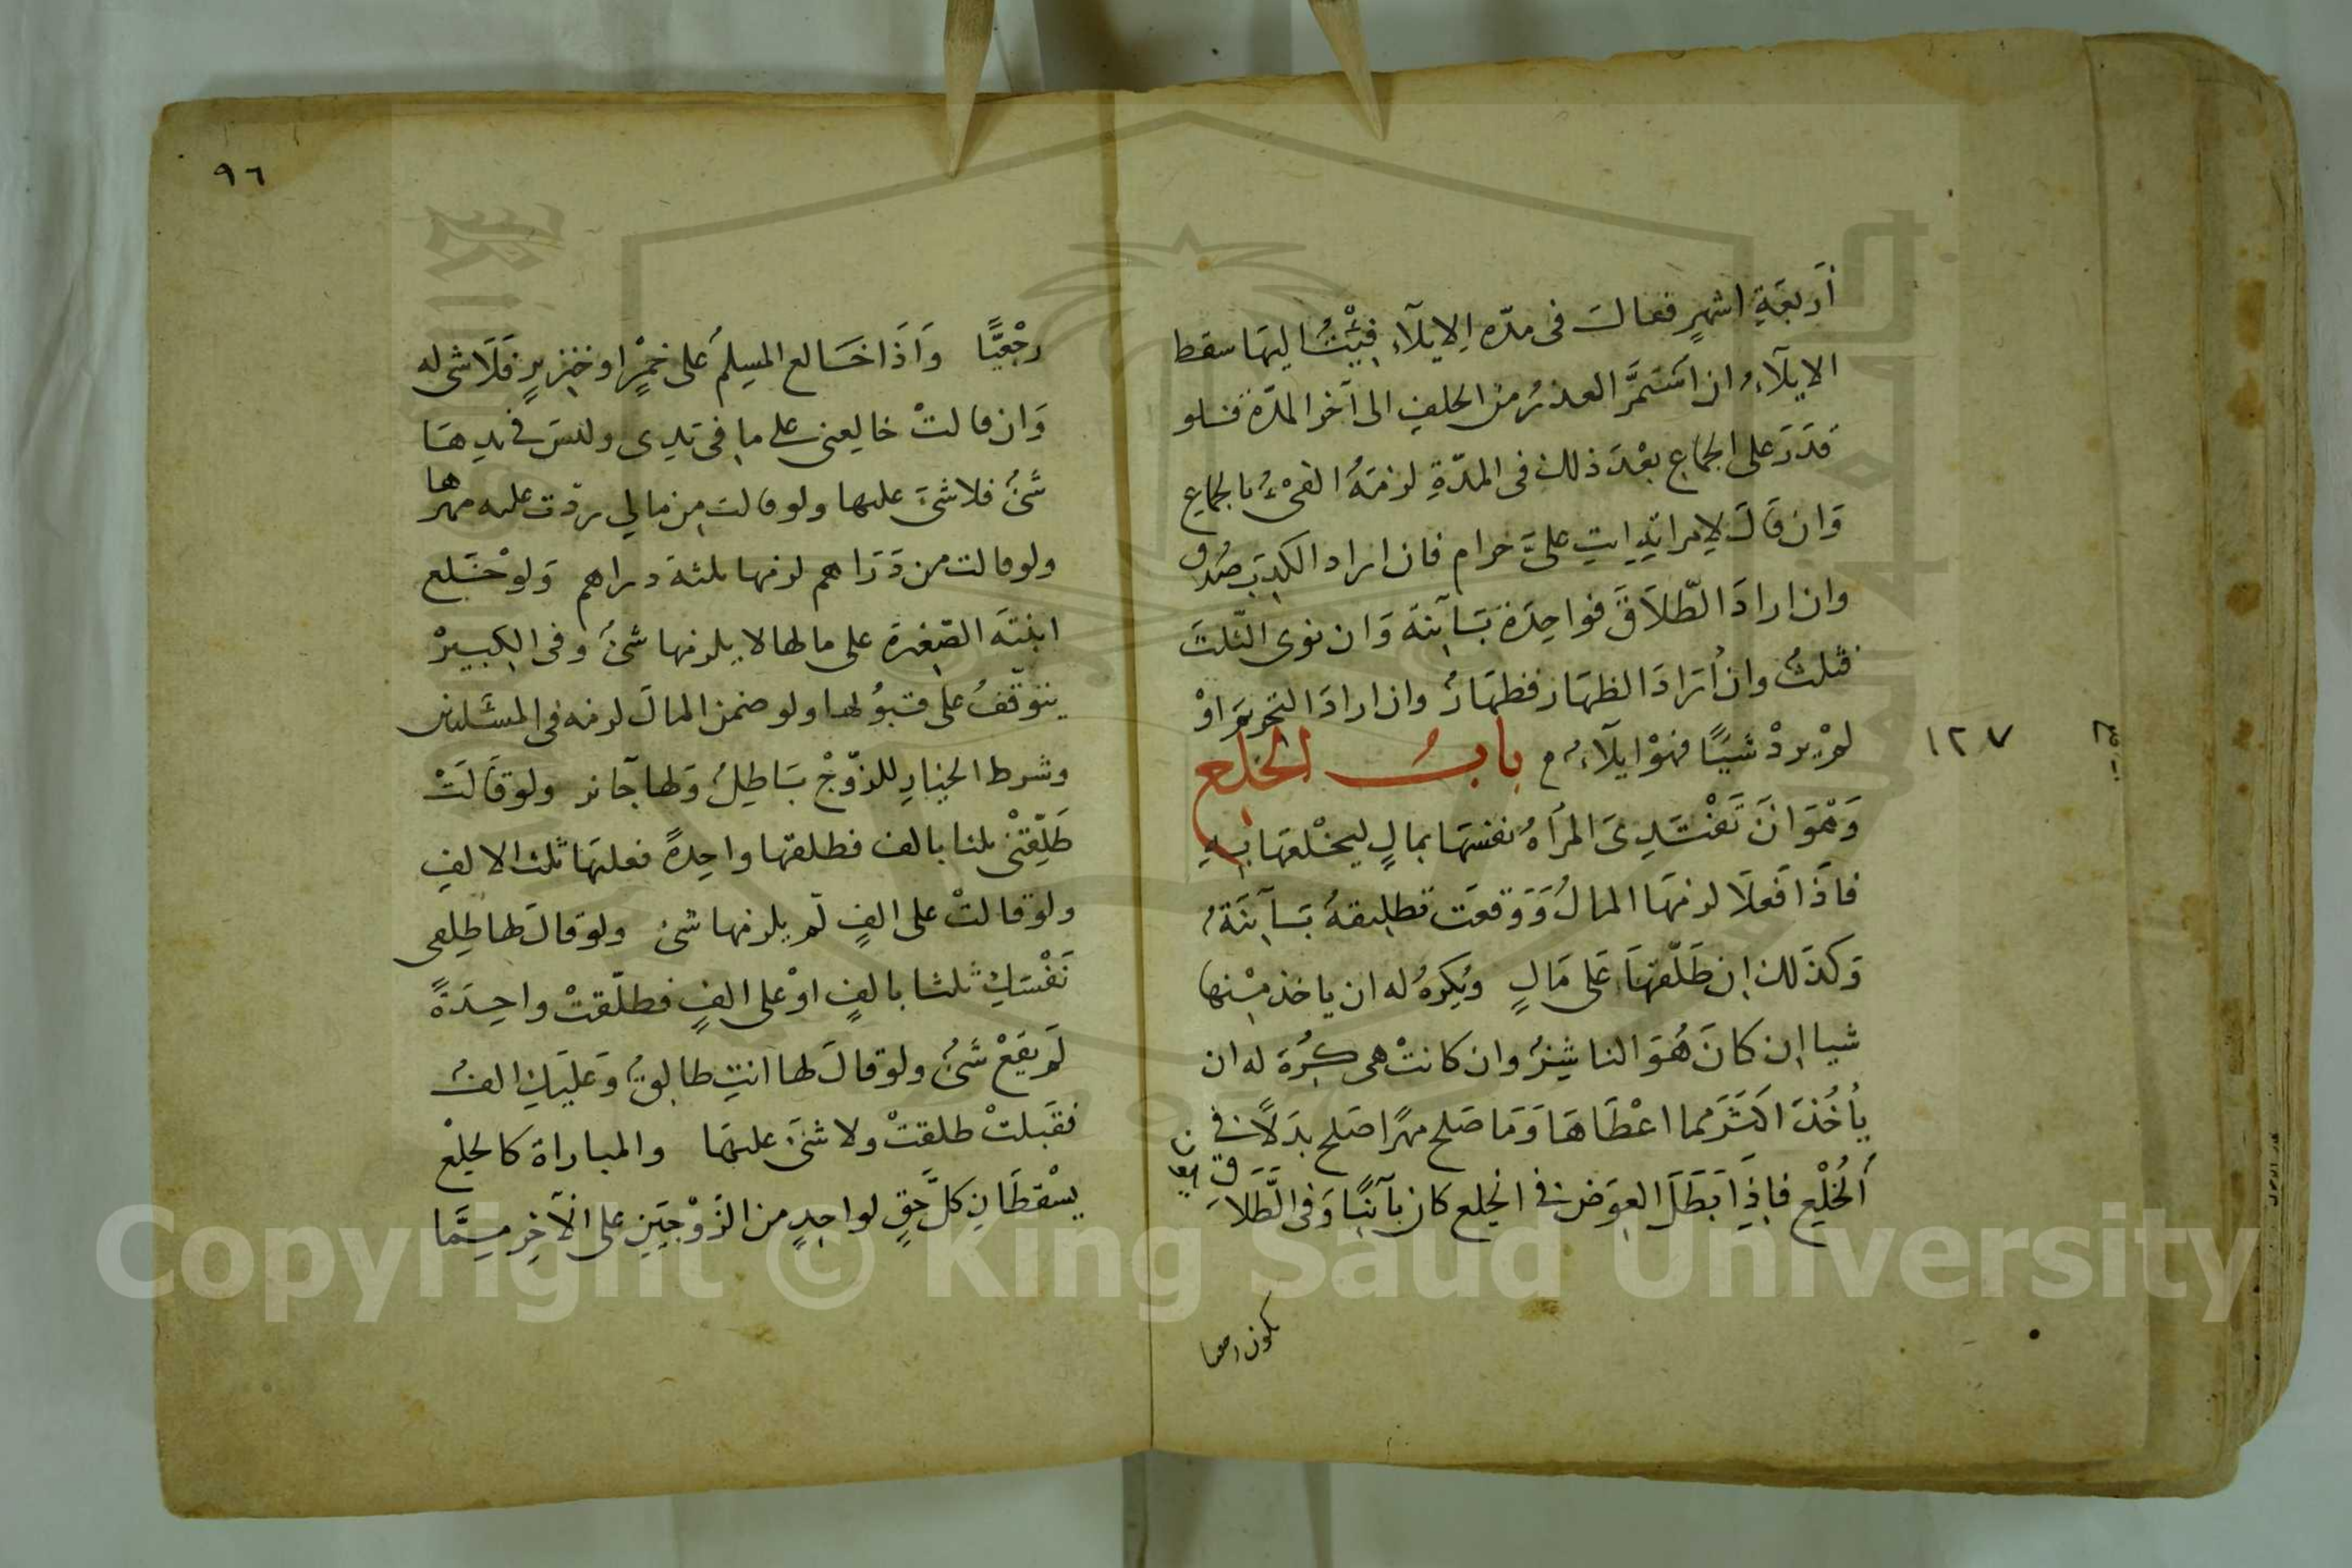 أَربعَةِ اشهرٍ فقالَ فى مدّه الايلآءِ فِئْتُ اليهَا سقط
الايلآءُ ان اسَتمَرَّ العذرُ من الحلفِ الى آخر المدّة فلو
قَدَرَ على الجماع بعْدَ ذلك فى المدّةِ لزمَهُ الفىْءُ بالجماع
وَان قَالَ لامراتِهِ انتِ علىَّ حرام فان اراد الكذبَ صُدق
وان ارادَ الطّلاَقَ فواحِدَة بَآئنَة وَان نوى الثّلثَ
فثلثٌ وان اَرَادَ الظهَار فظهَارٌ وان ارادَ التحريمَ اوْ
لمْ يردْ شيئًا فهوْ ايلآءٌ م بابُ الخلع
١٢٧
وَهْوَ انَ تَفْتَدِىَ المرأهُ نفسَهَا بمالٍ ليخْلعَهَا بهِ
فاَذَا فَعلَا لزمَهَا المالُ وَوَقعَت تطليقهٌ بَآئنَةٌ
وَكذَلك ان طَلّقهَا عَلى مَالٍ ويُكرهُ له ان ياخذ مْنها
شيا ان كانَ هُوَ الناشِزُ وان كانتْ هى كُرهَ له ان
يأخُذَ اكثَرَ مما اعْطَاهَا وَمَا صَلح مهرًا صَلح بدَلًا فى
اَلْخُلْعِ فاِذَا بَطَلَ العِوَض فى الخلع كان بآئنًا وَفى الطَّلاَق
٩٦
رجْعيًّا وَاذَا خَالع المسلمُ على خمْرٍ او خنزيرٍ فَلَا شى له
وَان قالتْ خالعنى على ما فى يَدِى وليسَ فى يدِهَا
شَىٌ فلا شىَْ عليها ولو قالت من مالي ردّت عليه مهرها
ولو قالت من دَرَاهم لزمها ثلثة دراهم وَلوْ خَلع
ابنتَه الصّغيرَة على مالها لا يلزمها شىٌ وفى الكبيرْ
يتَوقّفُ على قبوُلها ولو ضمن المالَ لزمه فى المسَئلتين
وشرط الخيارِ للزّوْجْ بَاطِلٌ وَلها جَآئز ولو قَالَتْ
طَلّقِنْى ثلثا بالف فطلقها واحِدةً فعليهَا ثلث الالفِ
ولو قالتْ على الفٍ لَمْ يلزمها شئ ولو قالَ لها طلقى
نَفْسَكِ ثلثا بالفٍ اوْ على الفٍ فطلّقتْ واحِدَةً
لَمْ يقَعْ شَىٌ ولو قالَ لها انتِ طالِقٌ وَعليكِ الفٌ
فقَبلتْ طلقتْ ولا شئَ عليهَا والمباراة كالخلْع
يسْقطَانِ كلَّ حَقٍ لواحِدٍ من الزّوْجَيَنِ على الآخِرِ مِمَّا
Copyright © King Saud University